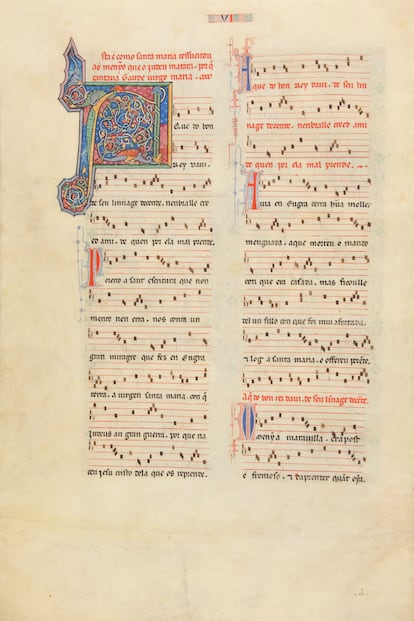 VI
Esta é como santa maria ressucitou
ao menyo que o iudeu matara. por q̃
cantaua Gaude uirgo maria.
A que do bon
Rey Daui.
de seu linnage decende. nenbralle cre
ed ami. de quen por ela mal prende.
Poren o a sant escritura que non
mente nen erra. nos conta un
gran miragre que fez en Engra
terra. a uirgen santa maria con q̃
iudeus an gran guerra. por que na
ceu iesu cristo dela que os reprende.
A que do bon Rey Daui. de seu lin
nage decende. nenbralle creed ami
de quen por ela mal prende.
Auia en Engra terra hũa moller
menguada. aque morreu o marido
con que era casada. mas ficoulle
del un fillo con que foi mui cõfortada.
& log a santa maria. o offereu
A q̃ do bon rei daui. de seu linage decẽde.
O menyn a marauilla. era post
e fremoso. & daprender quãt oya.